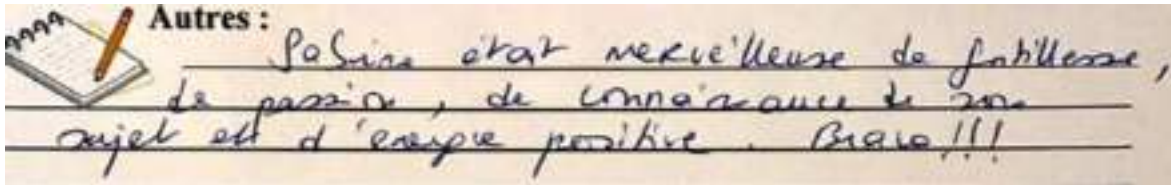 Autres :
Sabine était merveilleuse de gentillesse,
de passion, de connaissance de son
sujet et d'énergie positive. Bravo!!!